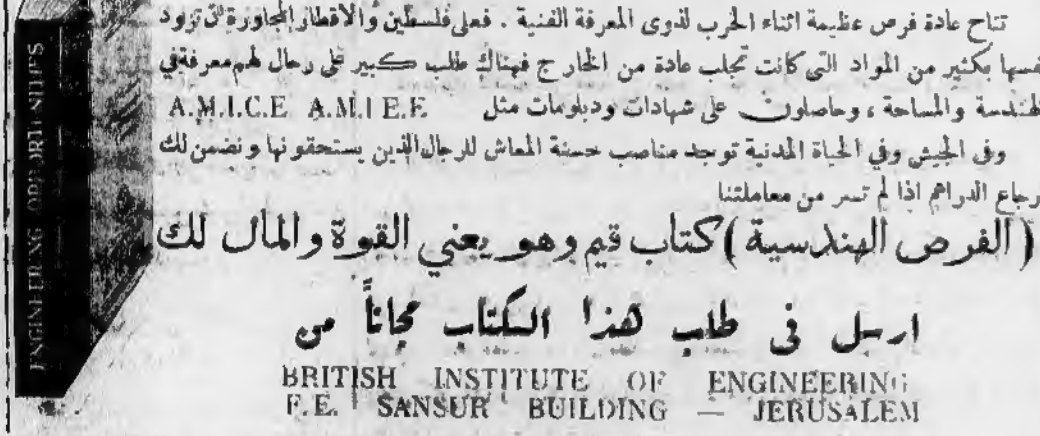 تتاح عادة فرص عظيمة اثناء الحرب لذوى المعرفة الفنية . فعلى فلسطين والاقطار المجاورة ان تزود
نفسها بكثير من المواد التى كانت تجلب عادة من الخارج فهناك طلب كبير على رجال لهم معرفة في
الهندسة والمساحة ، وحاصلون على شهادات ودبلومات مثل A.M.I.C.E A.M.I E.E.
وفى الجيش وفي الحياة المدنية توجد مناصب حسنة المعاش للرجال الذين يستحقونها ونضمن لك
ارجاع الدراهم اذا لم تسر من معاملتنا
(الفرص الهندسية) كتاب قيم وهو يعني القوة والمال لك
ارسل فى طلب هذا الكتاب مجاناً من
BRITISH INSTITUTE OF ENGINEERING
F.E. SANSUR BUILDING — JERUSALEM
ENGINEERING OPPORTUNITIES